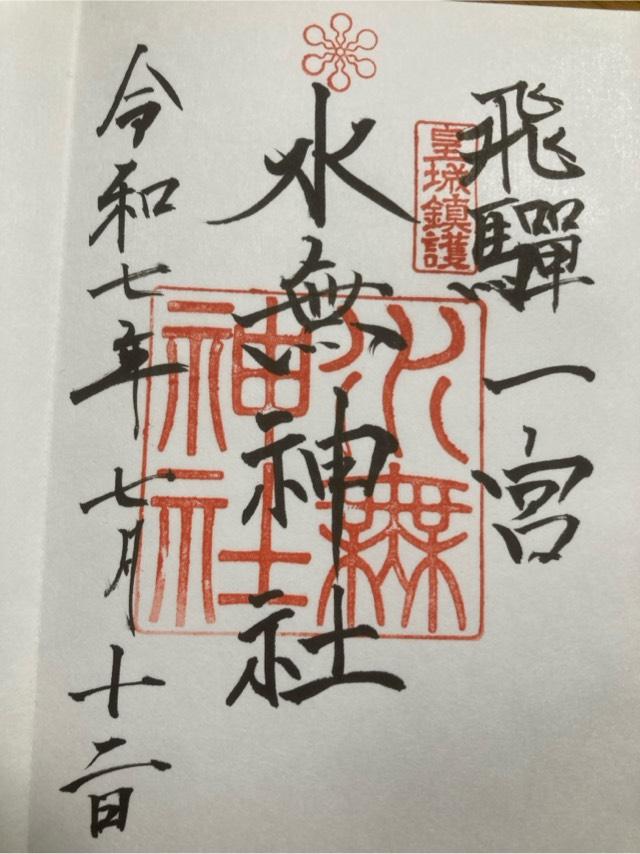 飛驒一宮
皇城鎮護
水無神社
水無神社
令和七年七月十二日